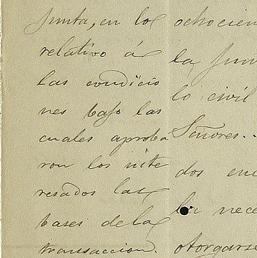 Junta, en los
relativo á
las condicio
nes bajo las
cuales aproba
ron los inte
resados las
bases de la
transaccion.
ochocien
la Jun
lo civil
Señores..
dos en
la nece
otorgarse